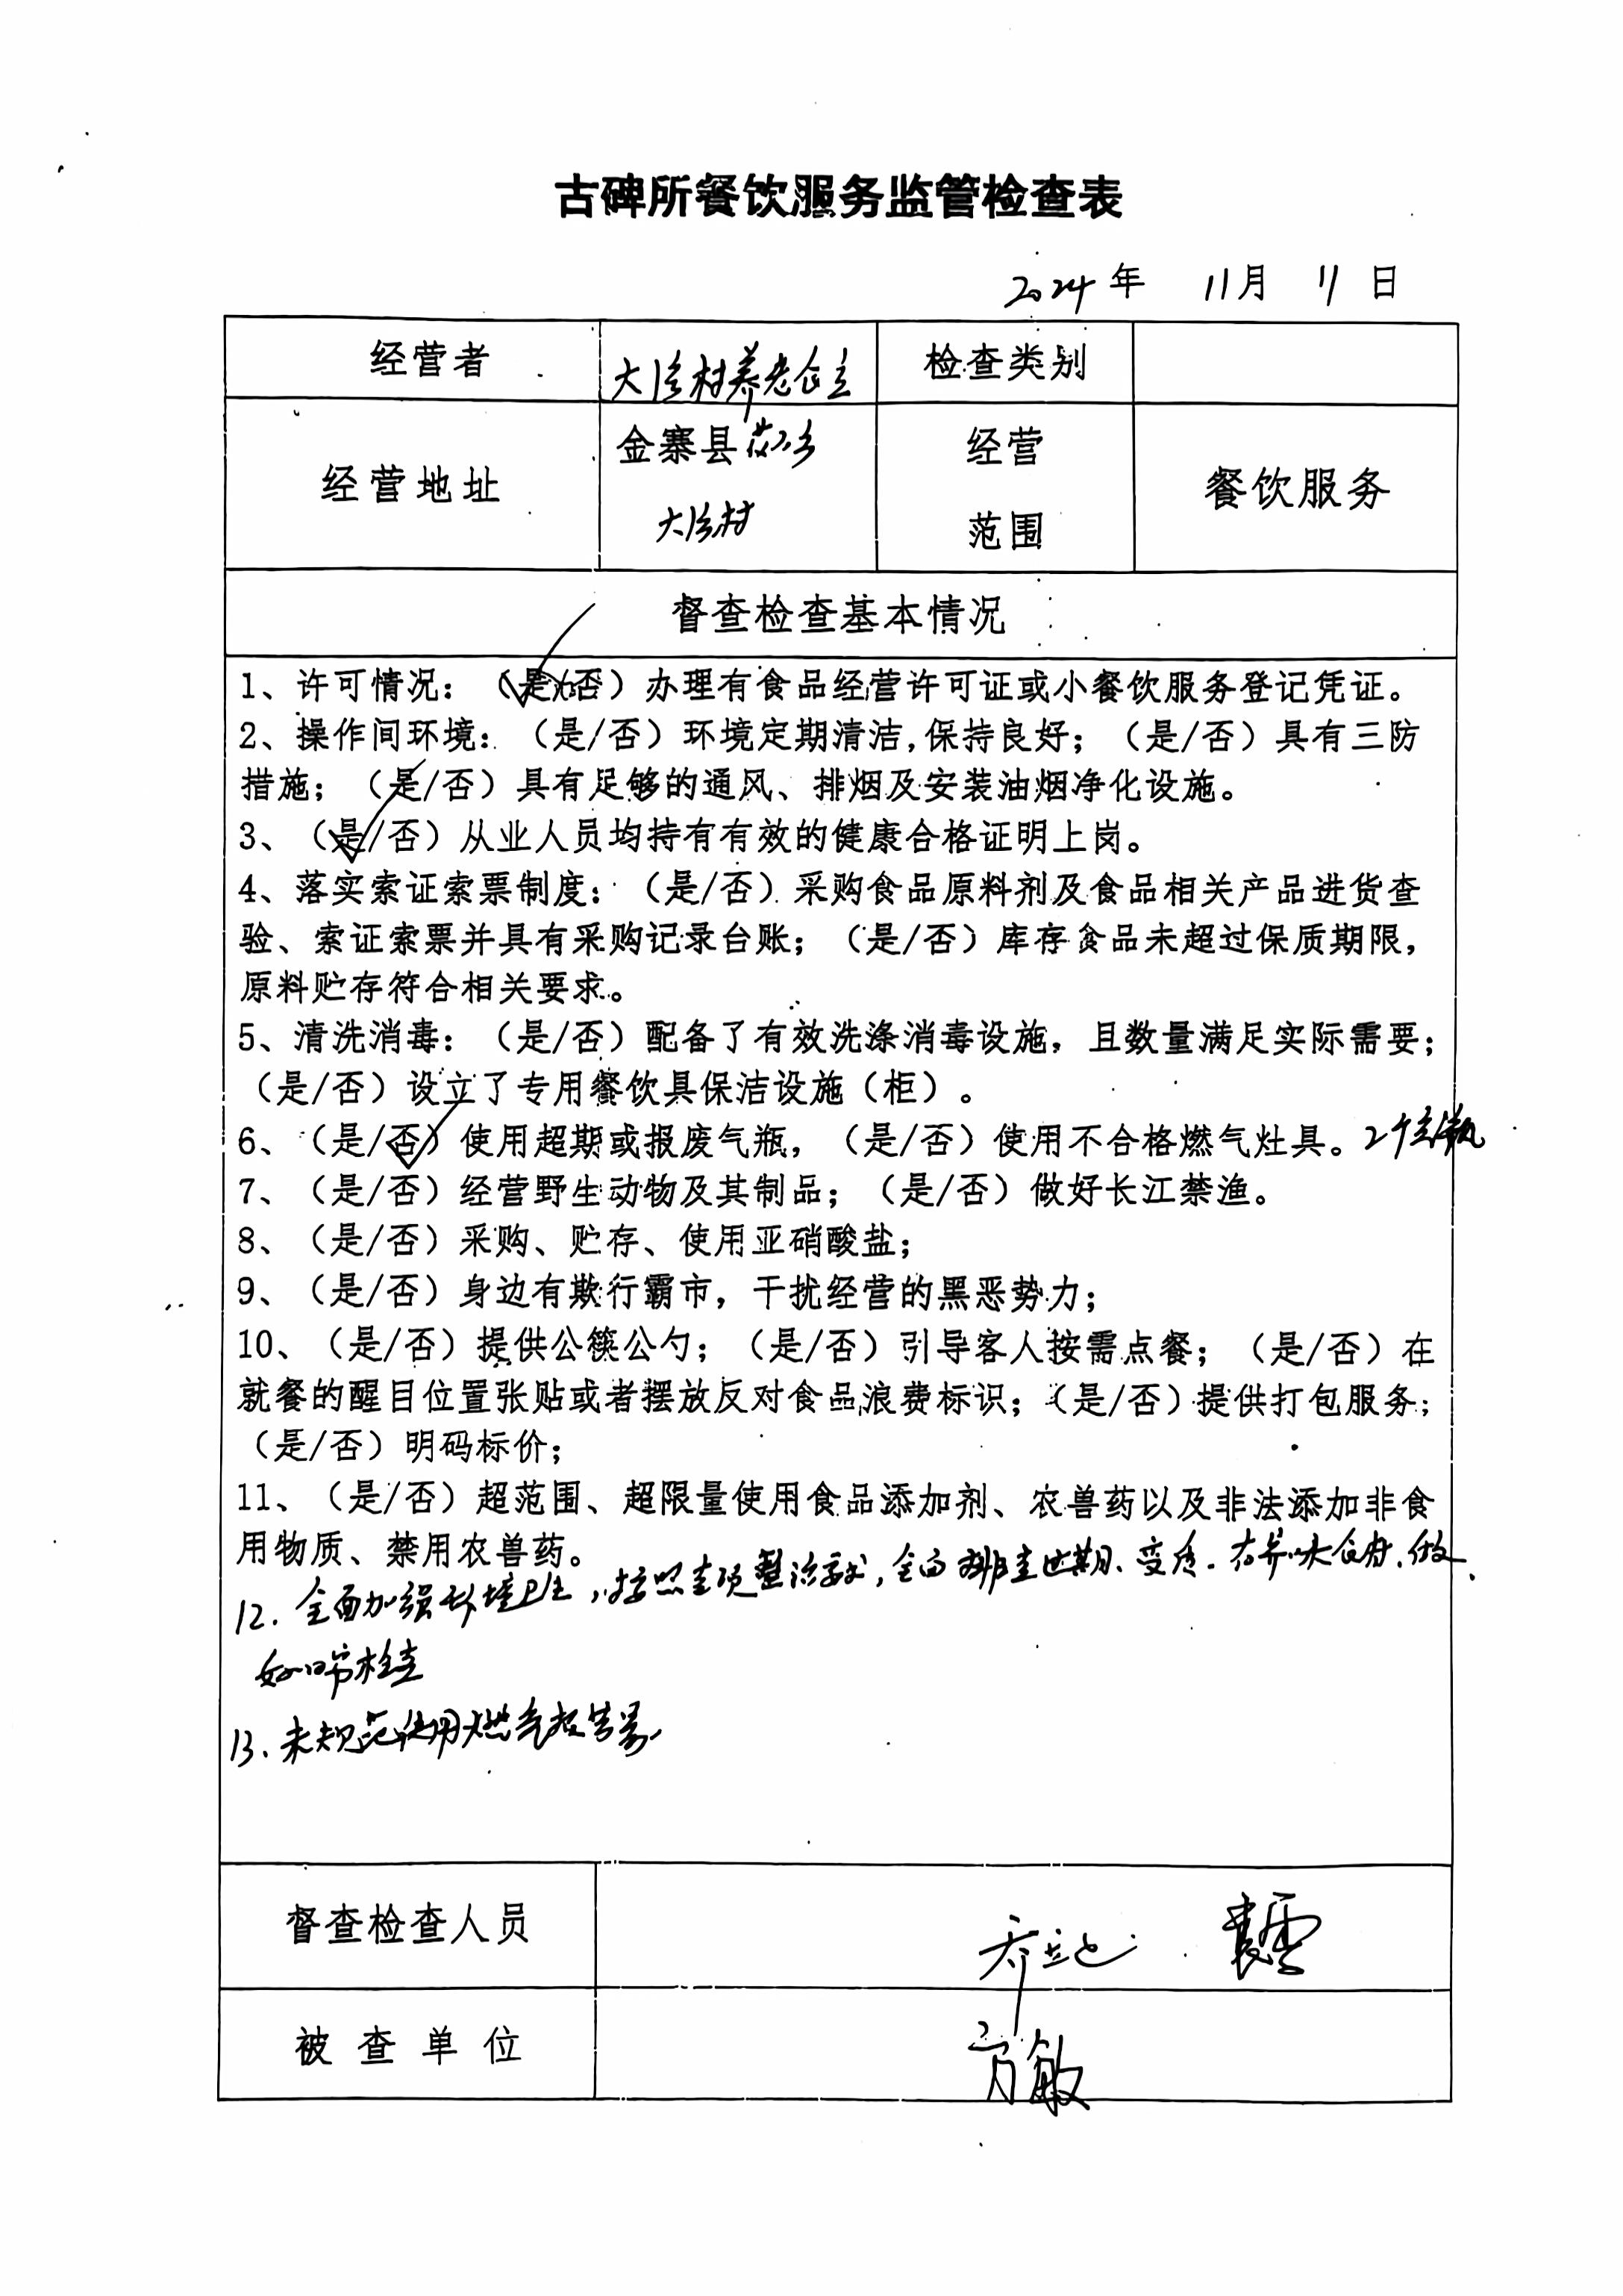 古碑所餐饮服务监管检查表
2024年 11月 11日
经营者 大 村养老 检查类别
经营地址 金寨县 乡 大 村 经营范围 餐饮服务
督查检查基本情况
1、许可情况：（是/否）办理有食品经营许可证或小餐饮服务登记凭证。
2、操作间环境：（是/否）环境定期清洁,保持良好；（是/否）具有三防
措施；（是/否）具有足够的通风、排烟及安装油烟净化设施。
3、（是/否）从业人员均持有有效的健康合格证明上岗。
4、落实索证索票制度：（是/否）采购食品原料剂及食品相关产品进货查
验、索证索票并具有采购记录台账；（是/否）库存食品未超过保质期限，
原料贮存符合相关要求。
5、清洗消毒：（是/否）配备了有效洗涤消毒设施，且数量满足实际需要；
（是/否）设立了专用餐饮具保洁设施（柜）。
6、（是/否）使用超期或报废气瓶，（是/否）使用不合格燃气灶具。2个 瓶
7、（是/否）经营野生动物及其制品；（是/否）做好长江禁渔。
8、（是/否）采购、贮存、使用亚硝酸盐；
9、（是/否）身边有欺行霸市，干扰经营的黑恶势力；
10、（是/否）提供公筷公勺；（是/否）引导客人按需点餐；（是/否）在
就餐的醒目位置张贴或者摆放反对食品浪费标识；（是/否）提供打包服务；
（是/否）明码标价；
11、（是/否）超范围、超限量使用食品添加剂、农兽药以及非法添加非食
用物质、禁用农兽药。
12. 全面加强环境卫生，按照专项整治要求，全面排查过期、变质、有异味食材，做
好日常检查
13、未规范使用燃气报警器
督查检查人员
被查单位 方敏